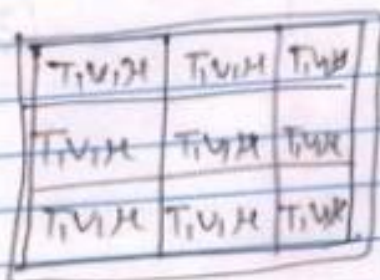 T, V, μ T, V, μ T, V, μ
T, V, μ T, V, μ T, V, μ
T, V, μ T, V, μ T, V, μ